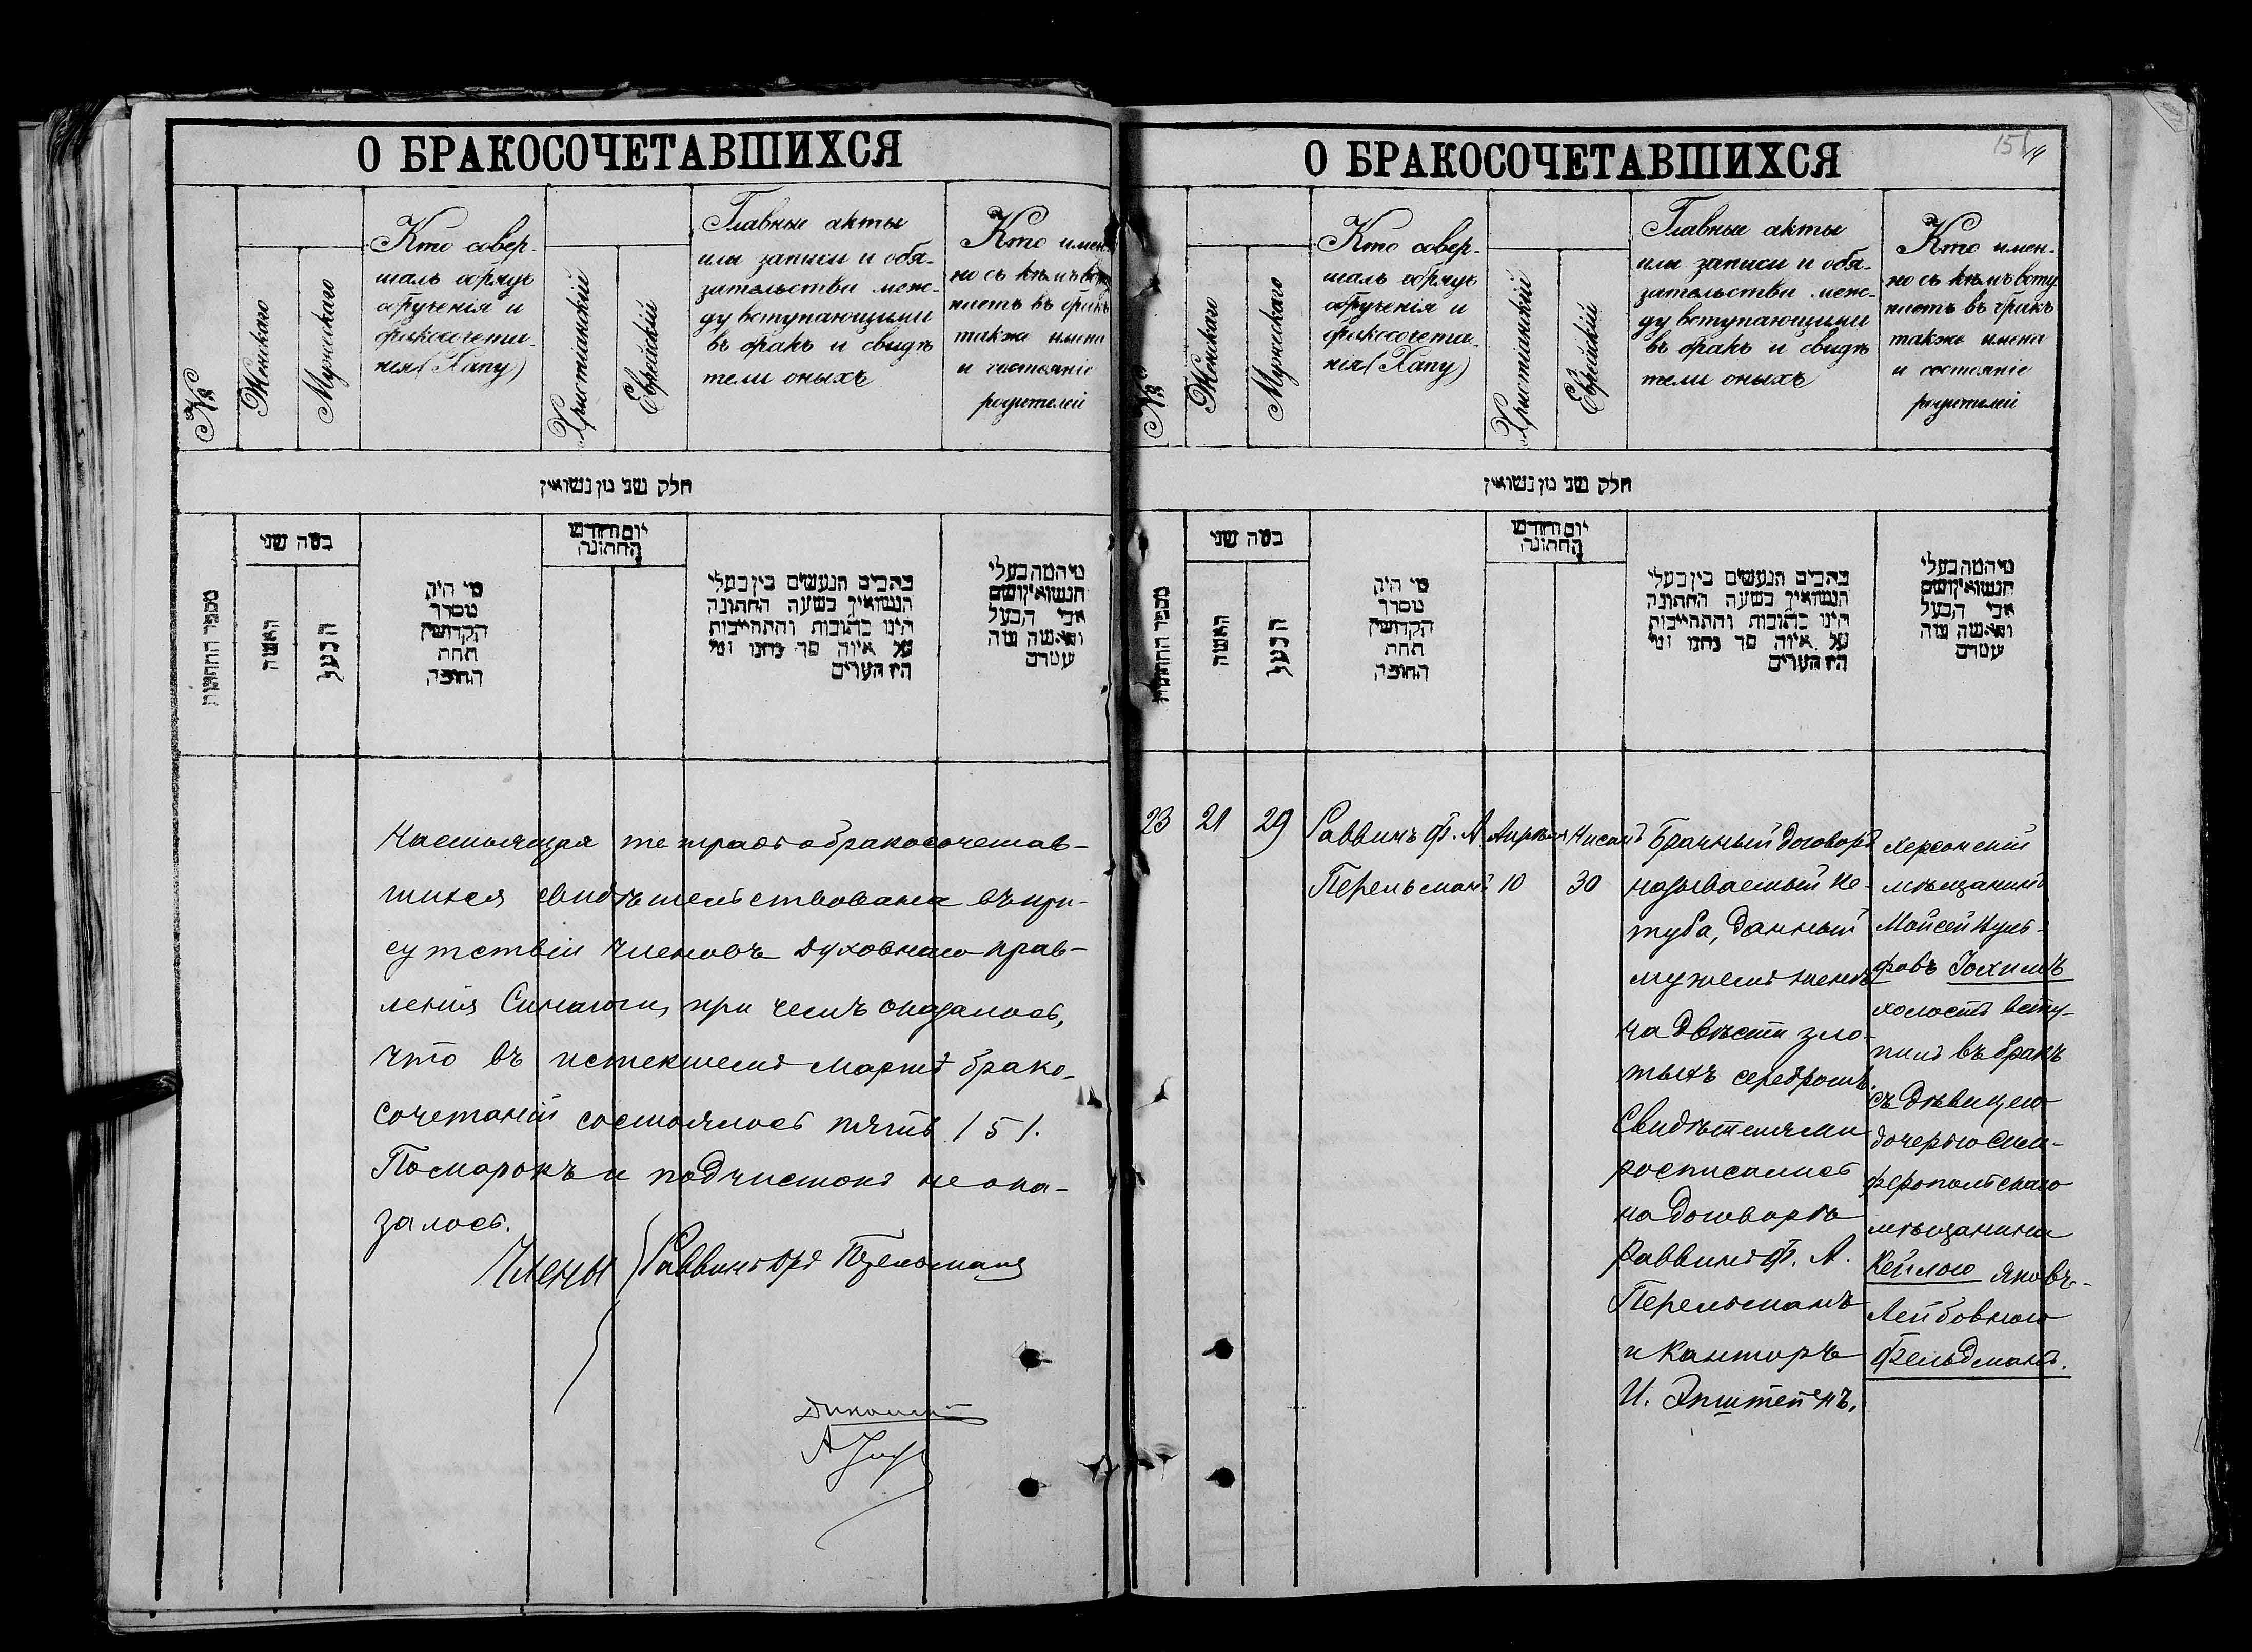 О БРАКОСОЧЕТАВШИХСЯ
№
Женскаго
Мужескаго
Кто совер-
шалъ обрядъ
обрученія и
бракосочета-
нія (Хапу)
Христіанскій
Еврейскій
Главные акты
или записи и обя-
зательства меж-
ду вступающими
въ бракъ и свидѣ
тели оныхъ
Кто имен
но съ кѣмъ всту
паетъ въ бракъ
также имена
и состояніе
родителей
חלק שני מן נשואין
מספר החתונות
במה שני
האשה
הבעל
מי היה
מסדר
הקדושין
תחת
החופה
יום וחודש
החתונה
כתבים הנעשים בין בעלי
הנשואין בשעה החתונה
היינו כתובות והתחייבות
על איזה סך נתנו ומי
היו העדים
מי המה בעלי
הנשואין ושם
אבי הבעל
והאשה ומה
עטרם
Настоящая тетрадь о бракосочетав-
шихся свидѣтельствована въ при-
сутствіи членовъ духовнаго прав-
ленія Синагоги, при чемъ оказалось,
что въ истекшемъ Мартѣ брако-
сочетаній состоялось пять /5/.
Помарокъ и подчистокъ не ока-
залось.
Члены
Раввинъ Перельманъ
О БРАКОСОЧЕТАВШИХСЯ
151
14
№
Женскаго
Мужескаго
Кто совер-
шалъ обрядъ
обрученія и
бракосочета-
нія (Хапу)
Христіанскій
Еврейскій
Главные акты
или записи и обя-
зательства меж-
ду вступающими
въ бракъ и свидѣ
тели оныхъ
Кто имен-
но съ кѣмъ всту
паетъ въ бракъ
также имена
и состояніе
родителей
חלק שני מן נשואין
מספר החתונות
במה שני
האשה
הבעל
מי היה
מסדר
הקדושין
תחת
החופה
יום וחודש
החתונה
כתבים הנעשים בין בעלי
הנשואין בשעה החתונה
היינו כתובות והתחייבות
על איזה סך נתנו ומי
היו העדים
מי המה בעלי
הנשואין ושם
אבי הבעל
והאשה ומה
עטרם
23
21
29
Раввинъ Ф. А.
Перельманъ
Апрѣля
10
Нисанъ
30
Брачный договоръ
называемый ке-
туба, данный
мужемъ женѣ
на двѣсти зло-
тыхъ серебромъ.
Свидѣтелями
росписались
на договорѣ
Раввинъ Ф. А.
Перельманъ
и Канторъ
И. Эпштейнъ.
Херсонскій
мѣщанинъ
Мойсей Вуль-
фовъ
холостъ всту-
пилъ въ бракъ
съ дѣвицею
дочерью Сим-
феропольскаго
мѣщанина
Кейлою Яковъ-
Лейбовною
Фельдманъ.